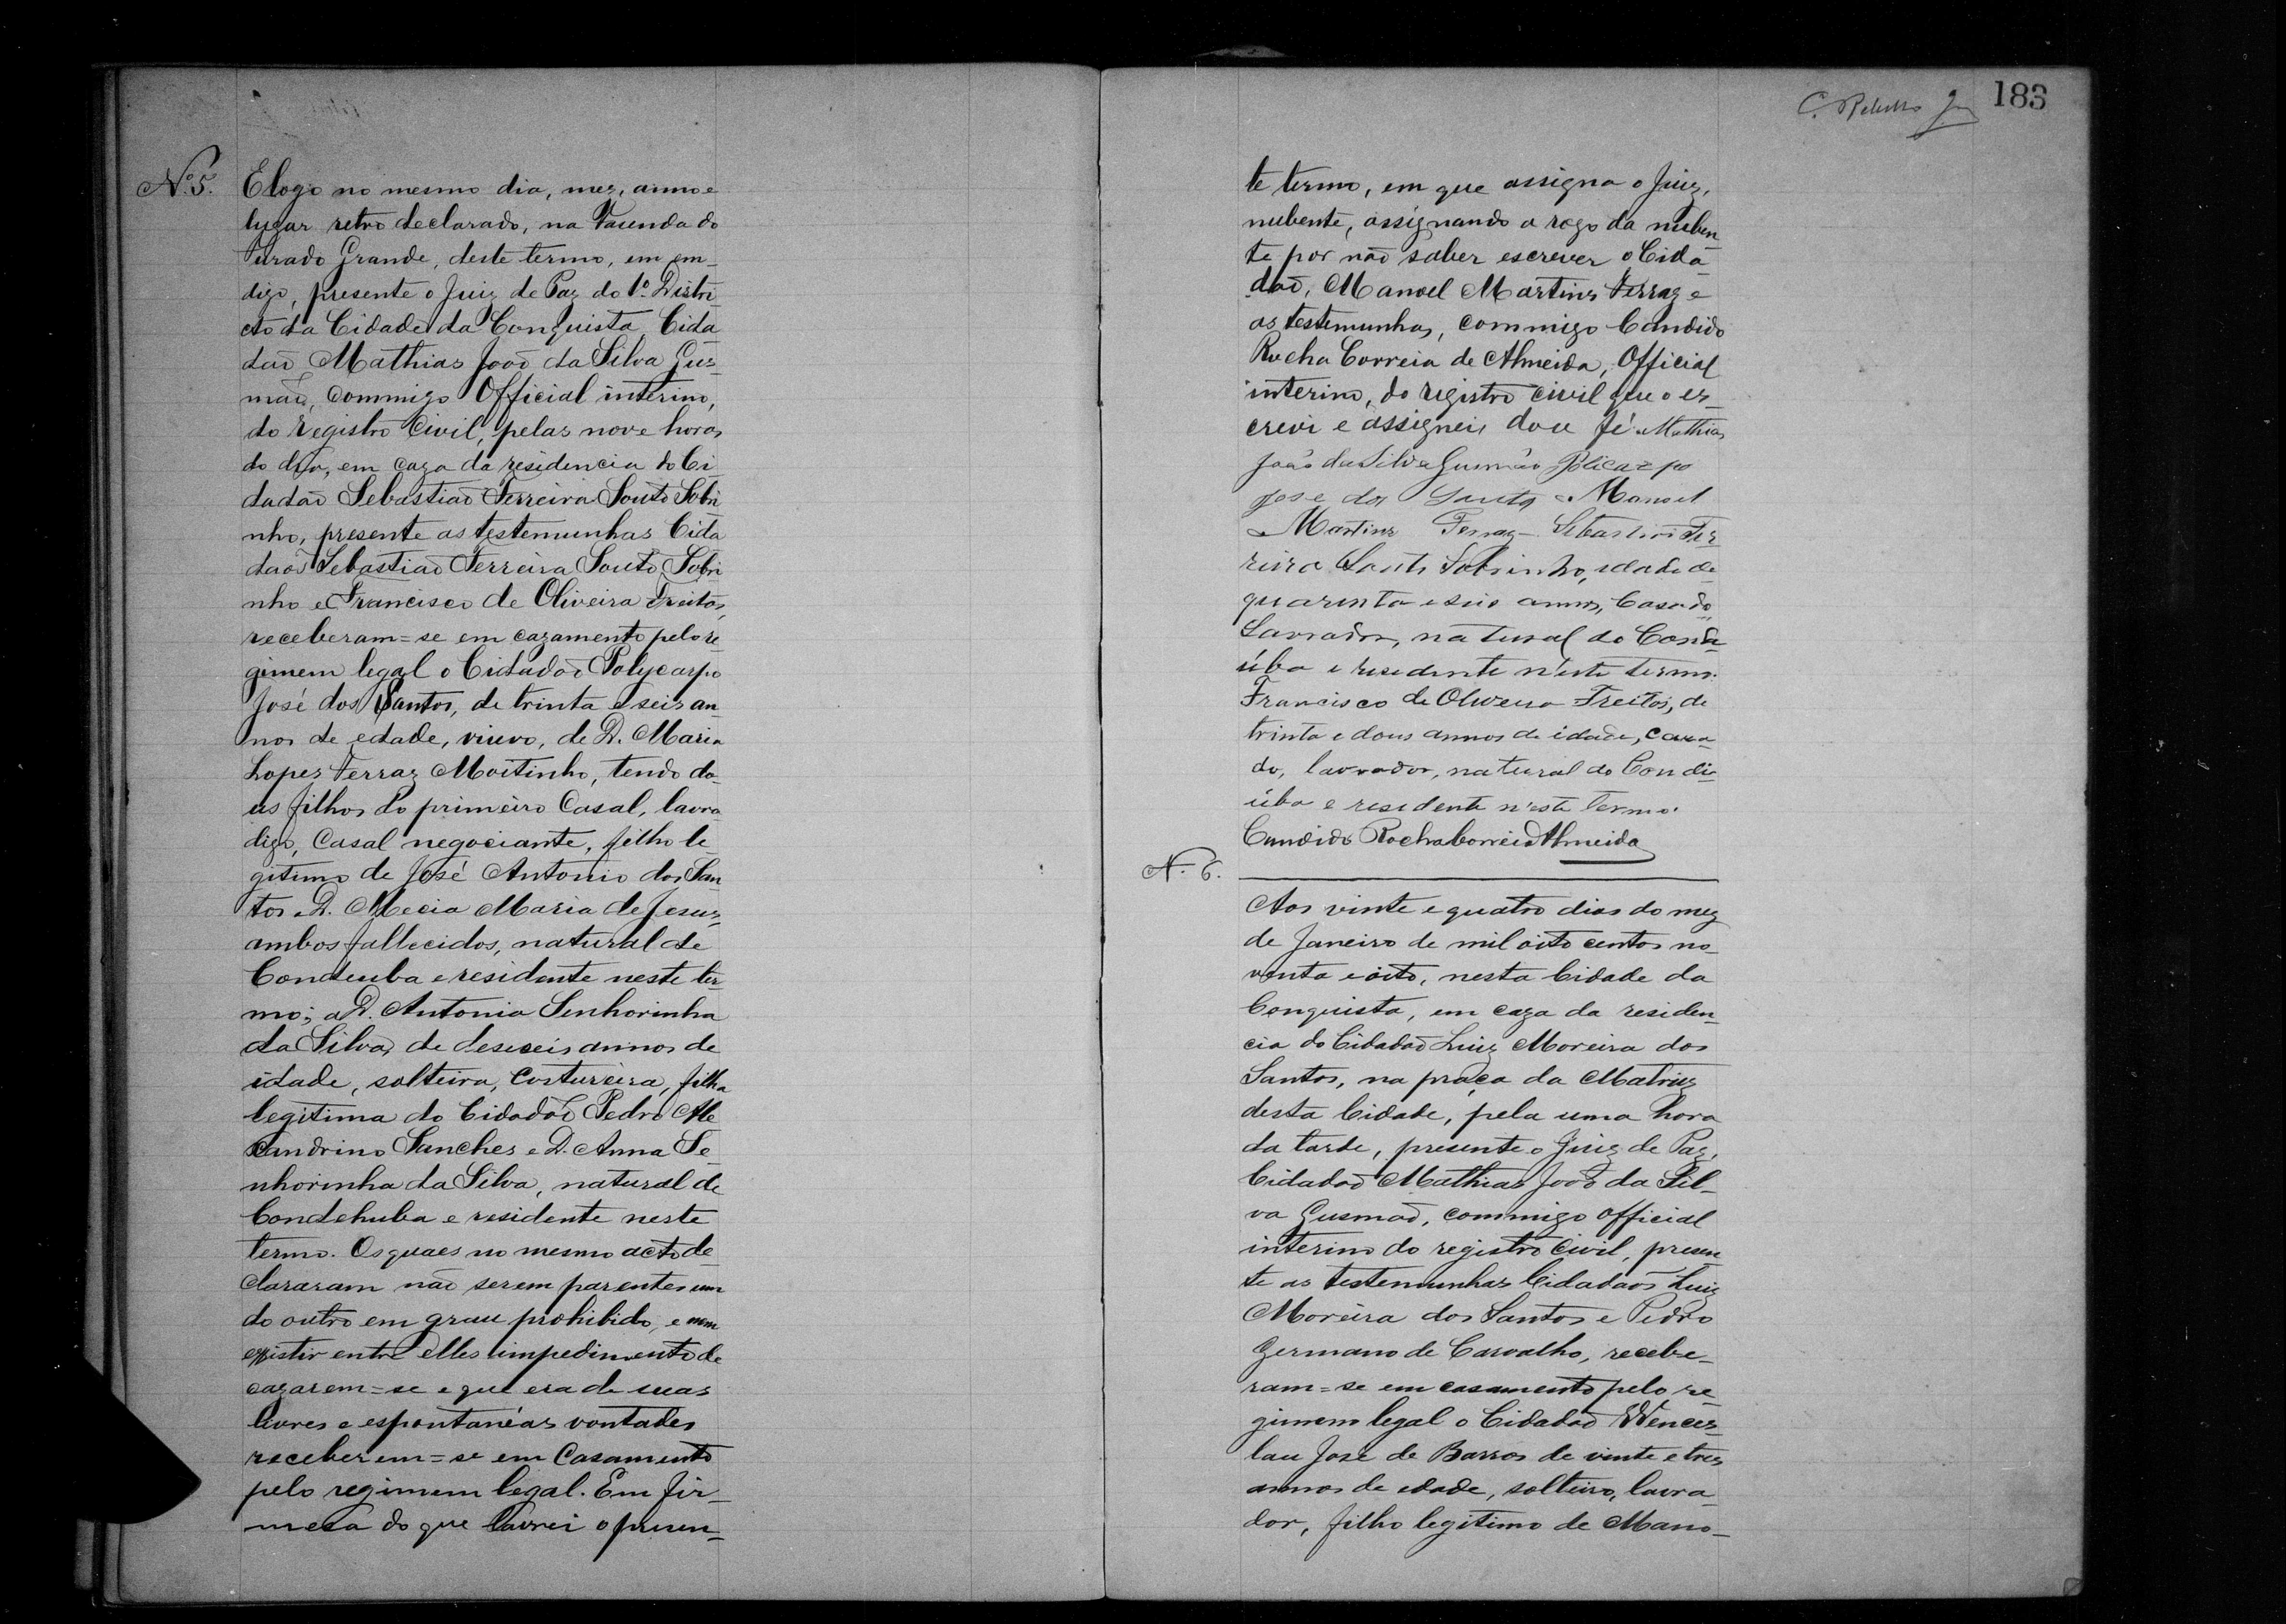 Nº 5.
E logo no mesmo dia, mez, anno e
lugar retro declarado, na Fazenda do
urado Grande, deste termo, em em_
digo, presente o Juiz de Paz do 1º. Distri
cto da Cidade da Conquista, Cida
dão Mathias João da Silva Gus_
mão, commigo Official interino,
do registro Civil, pelas nove horas
do dia, em caza da residencia do Ci
dadão Sebastião Ferreira Souto Sobri
nho, presente as testemunhas Cida
daõs Sebastião Ferreira Souto Sobri
nho e Francisco de Oliveira Freitas,
receberam=se em cazamento pelo re_
gimem legal o Cidadão Polycarpo
José dos Santos, de trinta e seis an_
nos de edade, viuvo, de D. Maria
Lopes Ferraz Moitinho, tendo do_
us filhos do primeiro Casal, lavra
digo, Casal negociante, filho le_
gitimo de José Antonio dos San
tos e D. Mecia Maria de Jesus,
ambos fallecidos, natural de
Condeuba e residente neste ter_
mo; a D. Antonia Senhorinha
da Silva, de deseseis annos de
idade, solteira, Costureira, filha
legitima do Cidadão Pedro Ale
xandrino Sanches e D. Anna Se_
nhorinha da Silva, natural de
Condehuba e residente neste
termo. Os quaes no mesmo acto de_
clararam não serem parentes um
do outro em grau prohibido, e nem
existir entre elles impedimento de
cazarem=se e que era de suas
livres e espontanéas vontades
receberem=se em Casamento
pelo regimem legal. Em fir_
meza do que lavrei o presen_
C. Rebello Jr
183
te termo, em que assigna o Juiz,
nubente, assignando a rogo da nuben
te por não saber escrever o Cida_
dão, Manoel Martins Ferraz e
as testemunhas, commigo Candido
Rocha Correia de Almeida, Official
interino, do registro civil que o es_
crevi e assignei, dou fé. Mathias
João da Silva Gusmão Policarpo
Jose dos Santos Manoel
Martins Ferraz Sebastião Fer
reira Souto Sobrinho, idade de
quarenta e seis annos, Casado
Lavrador, natural do Conde
úba e residente n'este termo.
Francisco de Oliveira Freitas, de
trinta e dous annos de idade, casa_
do, lavrador, natural do Conde
úba e residente n'este termo.
Candido Rocha Correia Almeida
N. 6.
Aos vinte e quatro dias do mez
de Janeiro de mil oito centos no_
venta e oito, nesta Cidade da
Conquista, em caza da residen_
cia do Cidadão Luiz Moreira dos
Santos, na praça da Matriz
desta Cidade, pela uma hora
da tarde, presente o Juiz de Paz,
Cidadão Mathias João da Sil_
va Gusmão, commigo official
interino do registro Civil, presen
te as testemunhas Cidadaõs Luiz
Moreira dos Santos e Pedro
Germano de Carvalho, recebe_
ram=se em casamento pelo re_
gimem legal o Cidadão Wences_
lau José de Barros de vinte e tres
annos de edade, solteiro, lavra_
dor, filho legitimo de Mano_